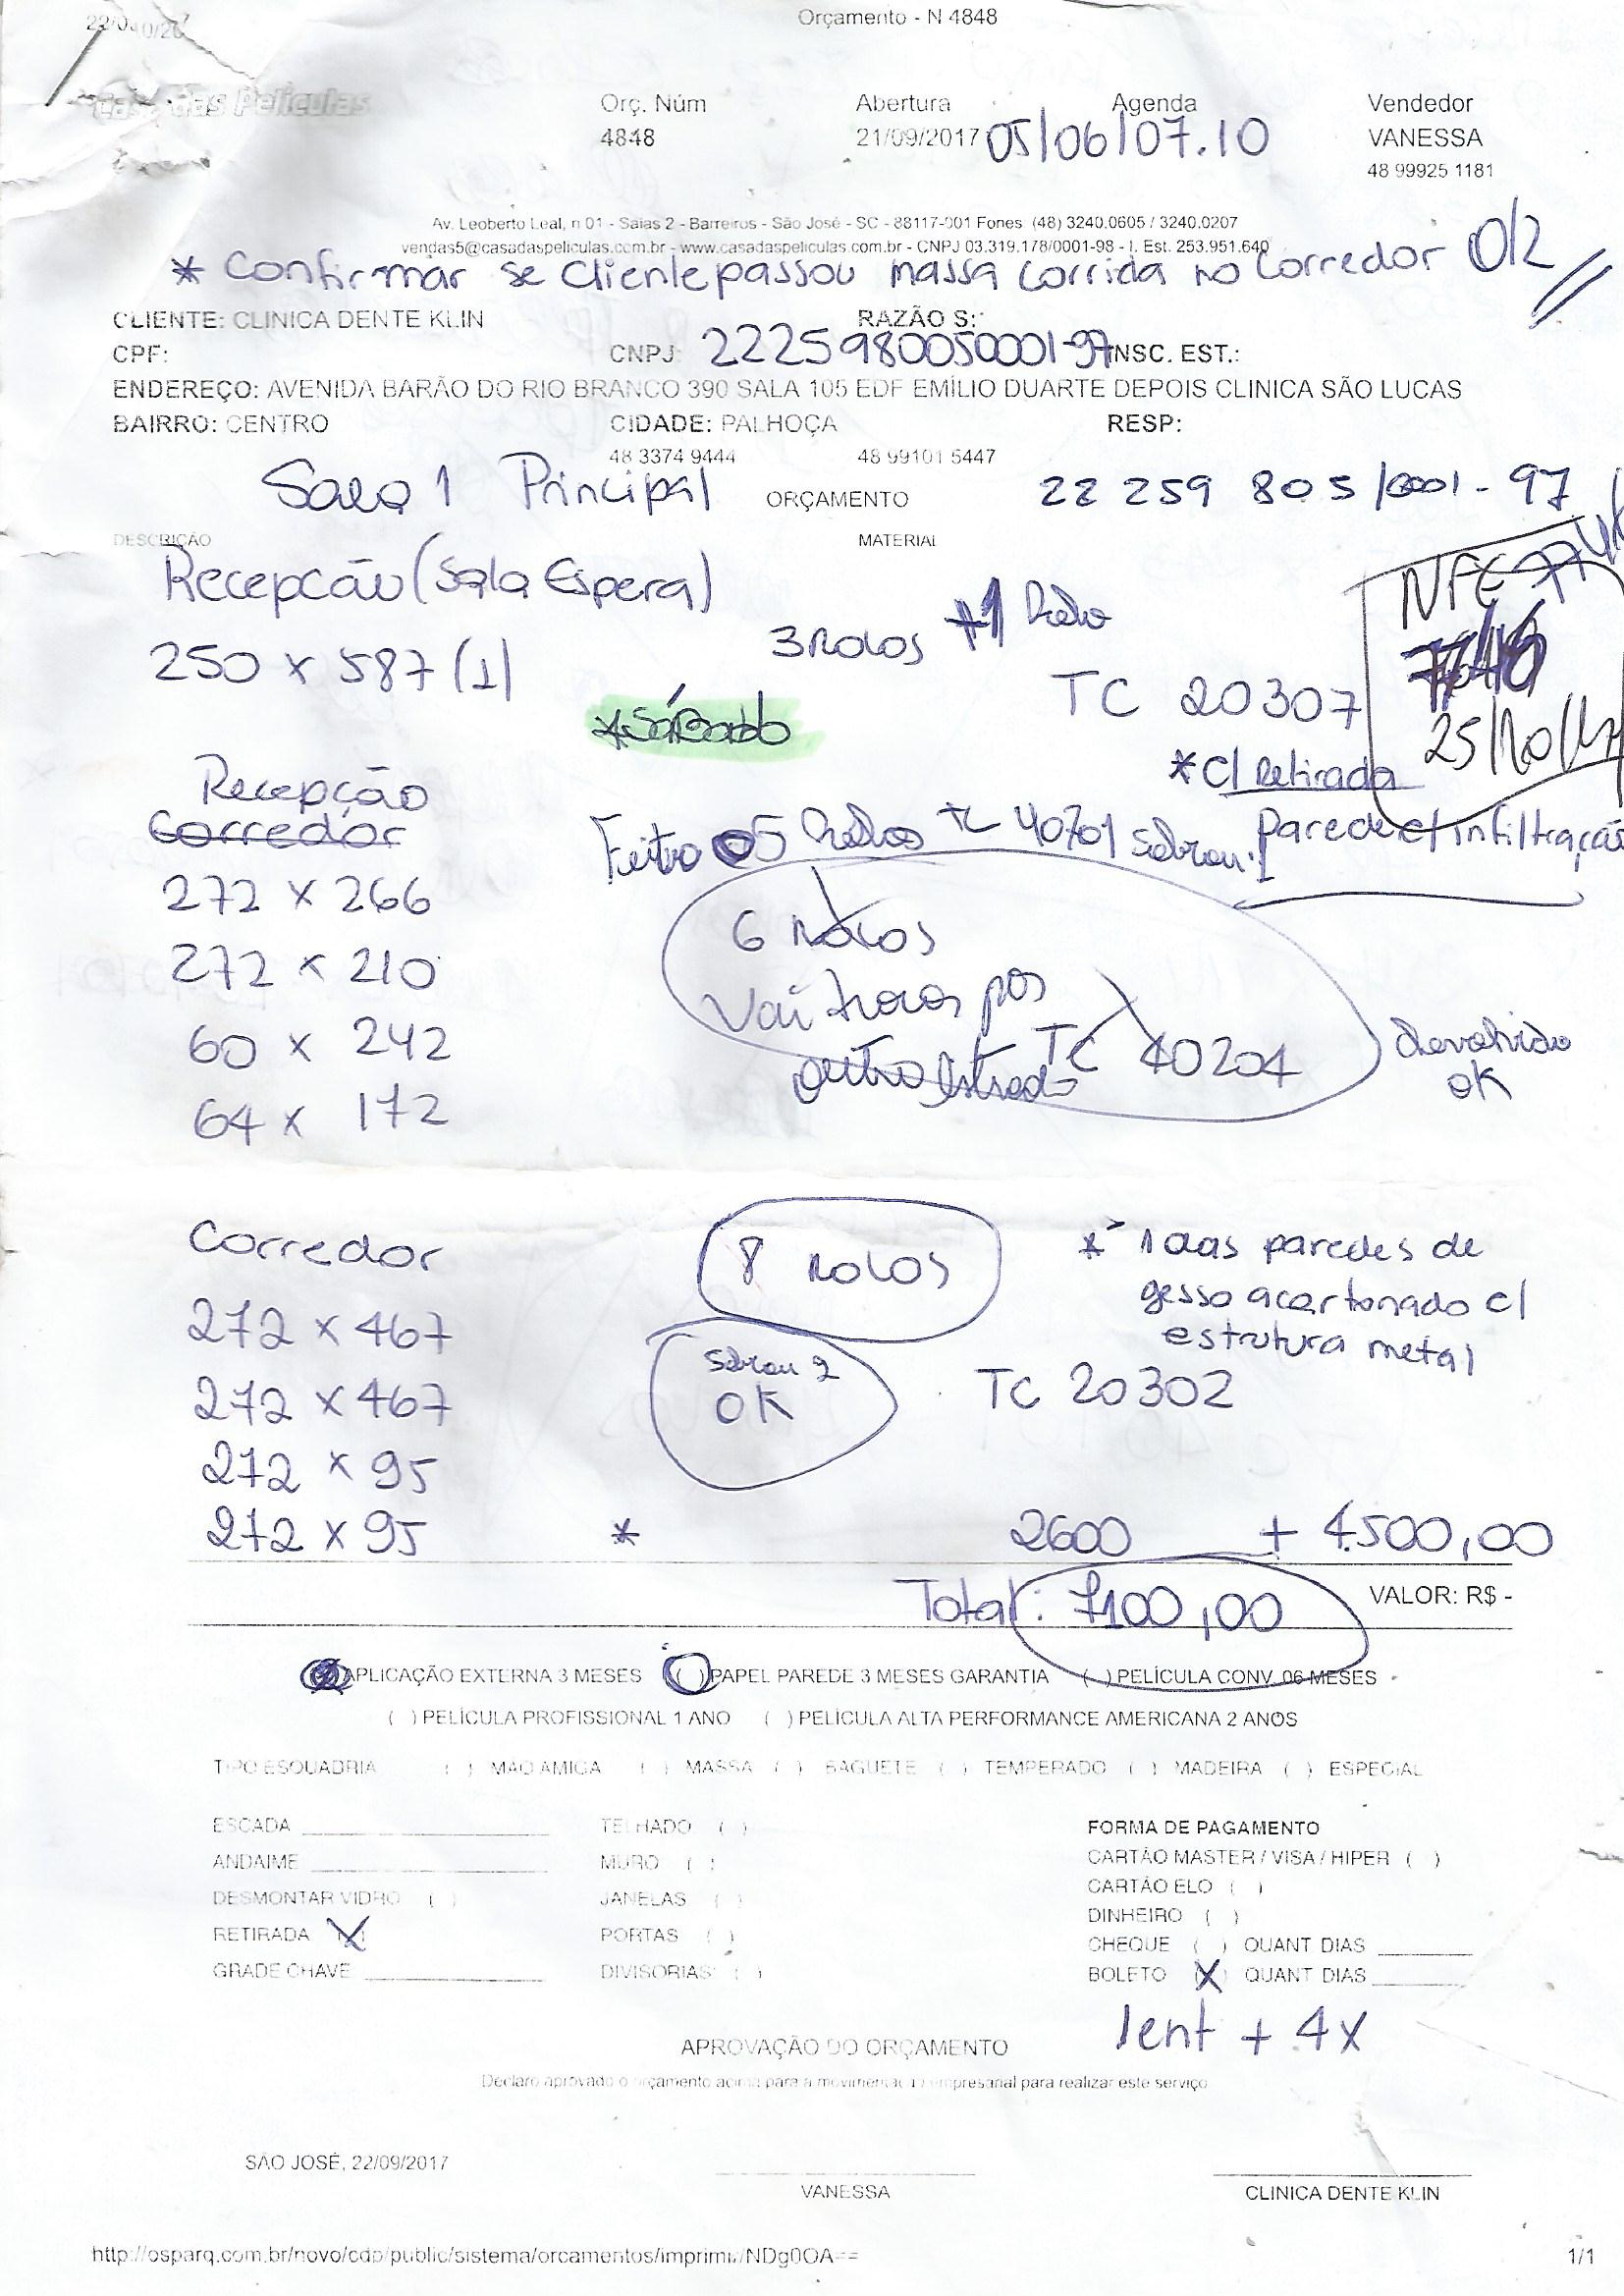 Orçamento - N 4848
Casa das Películas
Orç. Núm
Abertura
Agenda
Vendedor
4848
21/09/2017
05/06/07.10
VANESSA
48 99925 1181
Av. Leoberto Leal, n 01 - Salas 2 - Barreiros - São José - SC - 88117-001 Fones (48) 3240.0605 / 3240.0207
vendas5@casadaspeliculas.com.br - www.casadaspeliculas.com.br - CNPJ 03.319.178/0001-98 - I. Est. 253.951.640
* Confirmar se Cliente passou massa corrida no Corredor OK
CLIENTE: CLINICA DENTE KLIN RAZÃO S:
CPF: CNPJ: 2225980050001-97 INSC. EST.:
ENDEREÇO: AVENIDA BARÃO DO RIO BRANCO 390 SALA 105 EDF EMÍLIO DUARTE DEPOIS CLINICA SÃO LUCAS
BAIRRO: CENTRO CIDADE: PALHOÇA RESP:
48 3374 9444 48 99101 5447
1 Principal ORÇAMENTO 22 259 805/0001-97
DESCRIÇÃO MATERIAL
Recepcão (Sala Espera)
NFE
250 x 587 (1) 3 Rolos +1 Rolo
TC 20307
25/10/17
*Sábado
*C/ Retirada
Recepção
Corredor
Feitro 05 Rolos TC 40701 Sobrou 1
Parede c/ infiltração
272 x 266
6 Rolos
272 x 210
Vai trocar por
60 x 242
TC 40204
Devolvido
OK
64 x 172
Corredor 8 Rolos
* 1 das paredes de
gesso acartonado c/
estrutura metal
272 x 467
Sobrou 2
OK
272 x 467
TC 20302
272 x 95
272 x 95 * 2600 + 4.500,00
Total: 7100,00 VALOR: R$ -
APLICAÇÃO EXTERNA 3 MESES ( ) PAPEL PAREDE 3 MESES GARANTIA ( ) PELÍCULA CONV. 06 MESES
( ) PELÍCULA PROFISSIONAL 1 ANO ( ) PELÍCULA ALTA PERFORMANCE AMERICANA 2 ANOS
TIPO ESQUADRIA ( ) MAO AMIGA ( ) MASSA ( ) BAGUETE ( ) TEMPERADO ( ) MADEIRA ( ) ESPECIAL
ESCADA TELHADO ( ) FORMA DE PAGAMENTO
ANDAIME MURO ( ) CARTÃO MASTER / VISA / HIPER ( )
DESMONTAR VIDRO ( ) JANELAS ( ) CARTÃO ELO ( )
RETIRADA (X) PORTAS ( ) DINHEIRO ( )
CHEQUE ( ) QUANT DIAS
GRADE CHAVE DIVISORIAS ( ) BOLETO (X) QUANT DIAS
1ent + 4x
APROVAÇÃO DO ORÇAMENTO
Declaro aprovado o orçamento acima para a movimentação empresarial para realizar este serviço
SÃO JOSÉ, 22/09/2017
VANESSA CLINICA DENTE KLIN
http://osparq.com.br/novo/cdp/public/sistema/orcamentos/imprimir/NDg0OA==
1/1